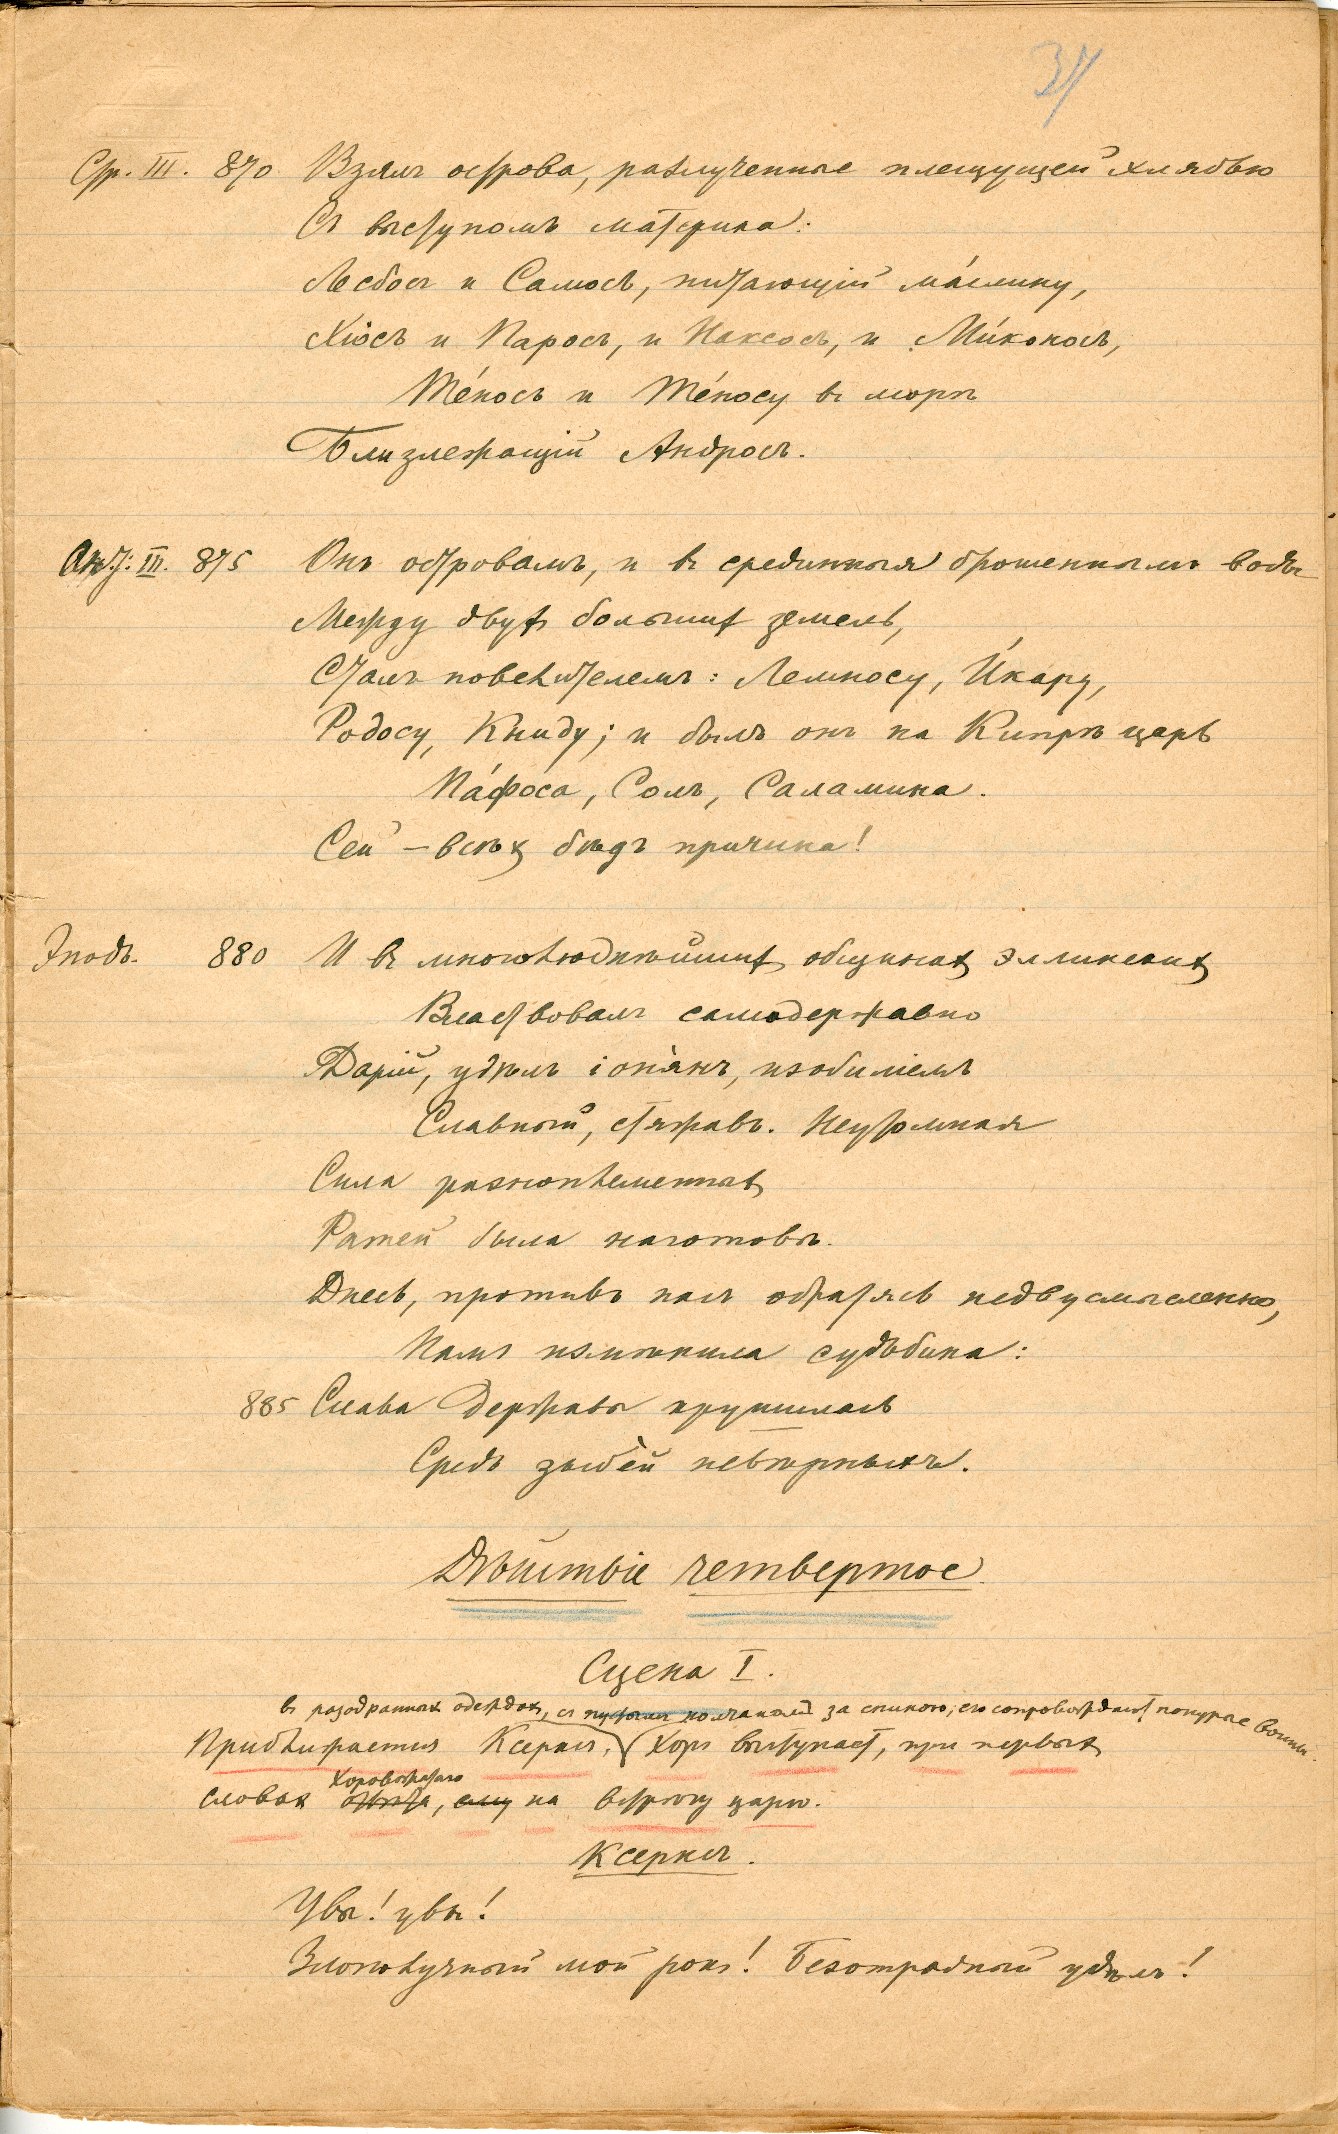 34
Стр. III. 870 Взялъ острова, разлученные плещущей хлябью
Съ выступомъ материка:
Лесбосъ и Самосъ, питающій ма́слину,
Хіосъ и Паросъ, и Наксосъ, и Ми́коносъ,
Те́носъ и Те́носу въ морѣ
Близлежащій Андросъ.
Ант. III. 875 Онъ островамъ, и въ срединныя брошеннымъ воды
Между двухъ большихъ земель,
Сталъ повелителемъ: Лемносу, И́кару,
Родосу, Книду; и былъ онъ на Кипрѣ царь
Па́фоса, Солъ, Саламина.
Сей – всѣхъ бѣдъ причина!
Эподъ. 880 И въ многолюднѣйшихъ общинахъ эллинскихъ
Властвовалъ самодержавно
Дарій, удѣлъ іона́нъ, изобиліемъ
Славный, стяжавъ. Неутомная
Сила разноплеменныхъ
Ратей была наготовѣ.
Днесь, противъ насъ обратясь недвусмысленно,
Намъ измѣнила судьбина:
885 Слава Державы крушилась
Средь зыбе́й невѣрныхъ.
Дѣйствіе четвертое.
Сцена I.
въ разодранныхъ одеждахъ, съ пустымъ колчаномъ за спиною; его сопровождаютъ понурые воины.
Приближается Ксерксъ, Хоръ выступаетъ, при первыхъ
Хоровожатаго
словахъ отвѣта, ему на встрѣчу царю.
Ксерксъ.
Увы! увы!
Злополучный мой рокъ! Безотрадный удѣлъ!